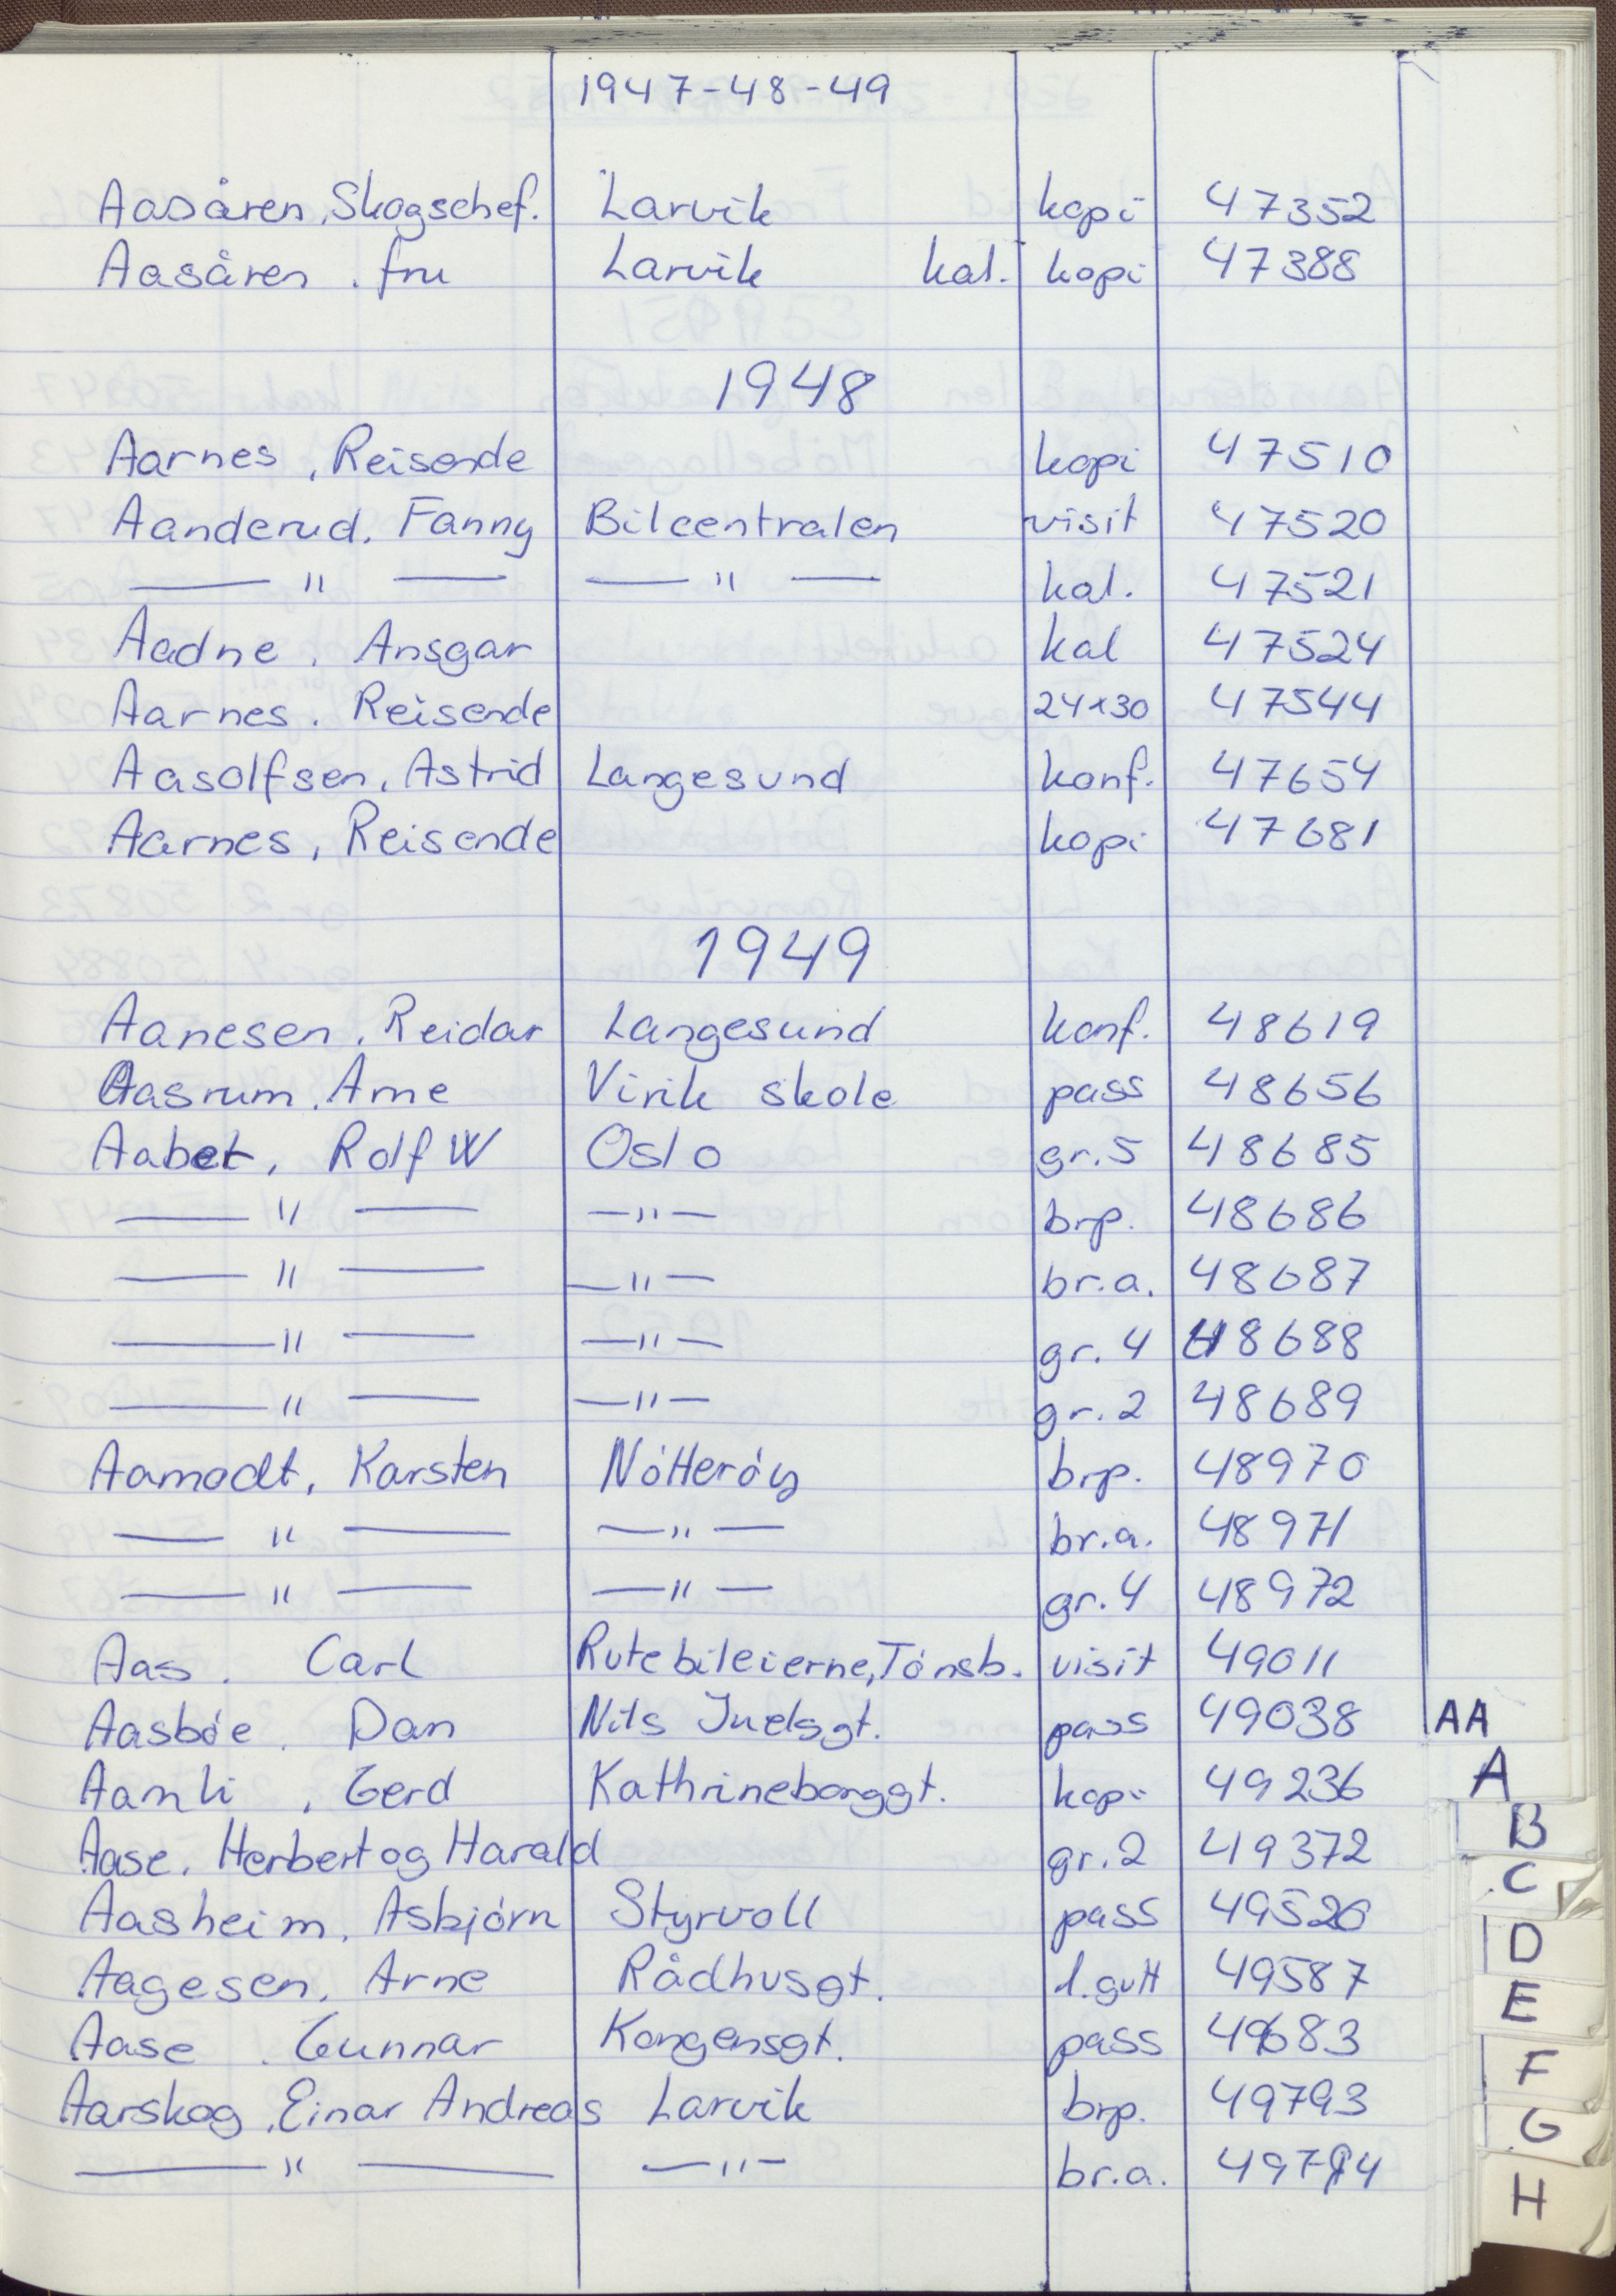 1947-48-49
Aasåren, Skogschef. Larvik kopi 47352
Aasåren, fru Larvik kal. kopi 47388
1948
Aarnes, Reisende kopi 47510
Aanderud, Fanny Bilcentralen visit 47520
— " — — " — kal. 47521
Aadne, Ansgar kal 47524
Aarnes, Reisende 24x30 47544
Aasolfsen, Astrid Langesund konf. 47654
Aarnes, Reisende kopi 47681
1949
Aanesen, Reidar Langesund konf. 48619
Aasrum, Arne Virik skole pass 48656
Aabet, Rolf W Oslo gr. 5 48685
— " — — " — brp. 48686
— " — — " — br.a. 48687
— " — — " — gr. 4 48688
— " — — " — gr. 2 48689
Aamodt, Karsten Nótteróy brp. 48970
— " — — " — br.a. 48971
— " — — " — gr. 4 48972
Aas, Carl Rutebileierne, Tónsb. visit 49011
Aasbóe, Dan Nils Juelsgt. pass 49038
Aamli, Gerd Kathrineborggt. kopi 49236
Aase, Herbert og Harald gr. 2 49372
Aasheim, Asbjórn Styrvoll pass 49520
Aagesen, Arne Rådhusgt. 1.gutt 49587
Aase, Gunnar Kongensgt. pass 49683
Aarskog, Einar Andreas Larvik brp. 49793
— " — — " — br.a. 49794
AA
A
B
C
D
E
F
G
H